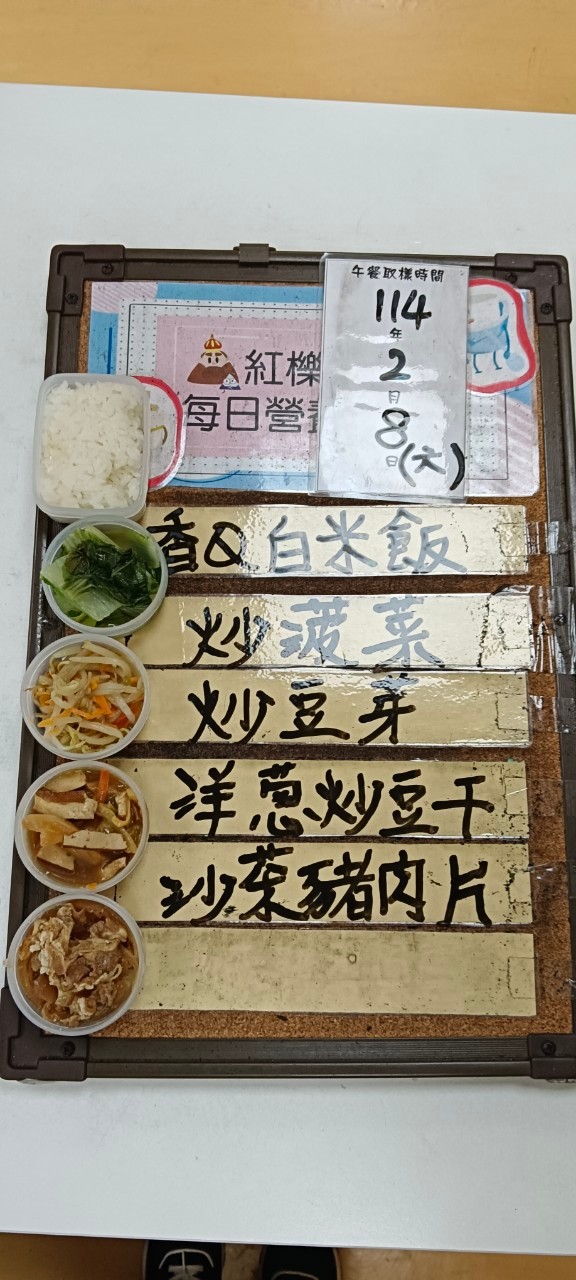 午餐取樣時間
114
年
2
月
8
日(六)
紅櫟
每日營
香Q白米飯
炒菠菜
炒豆芽
洋蔥炒豆干
沙茶豬肉片